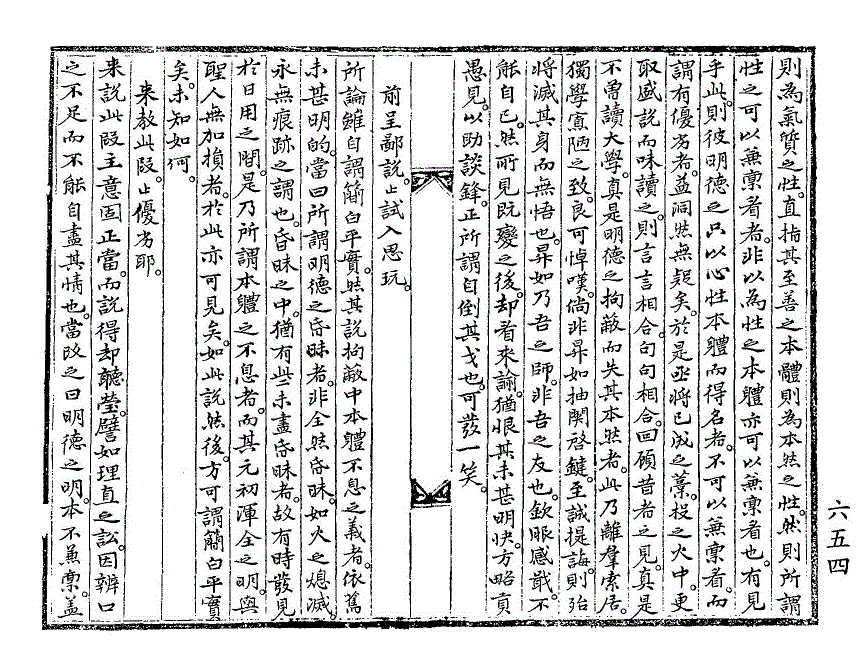 則爲氣質之性。直指其至善之本體則爲本然之性。然則所謂
性之可以兼稟看者。非以爲性之本體亦可以兼稟看也。有見
乎此。則彼明德之只以心性本體而得名者。不可以兼稟看。而
謂有優劣者。益洞然無疑矣。於是亟將已成之藁。投之火中。更
取盛說而味讀之。則言言相合。句句相合。回顧昔者之見。眞是
不曾讀大學。眞是明德之拘蔽而失其本然者。此乃離羣索居。
獨學寡陋之致。良可悼嘆。倘非昇如抽關啓鍵。至誠提誨。則殆
將滅其身而無悟也。昇如乃吾之師。非吾之友也。欽服感戢。不
能自已。然所見旣變之後。却看來諭。猶恨其未甚明快。方略貢
愚見。以助談鋒。正所謂自倒其戈也。可發一笑。
前呈鄙說。止試入思玩。
所論雖自謂簡白平實。然其說拘蔽中本體不息之義者。依舊
未甚明的。當曰所謂明德之昏昧者。非全然昏昧。如火之熄滅。
永無痕跡之謂也。昏昧之中。猶有些未盡昏昧者。故有時發見
於日用之間。是乃所謂本體之不息者。而其元初渾全之明。與
聖人無加損者。於此亦可見矣。如此說然後。方可謂簡白平實
矣。未知如何。
來敎此段。止優劣耶。
來說此段主意固正當。而說得却聽瑩。譬如理直之訟。因辨口
之不足而不能自盡其情也。當改之曰明德之明。本不兼稟。蓋
六五四